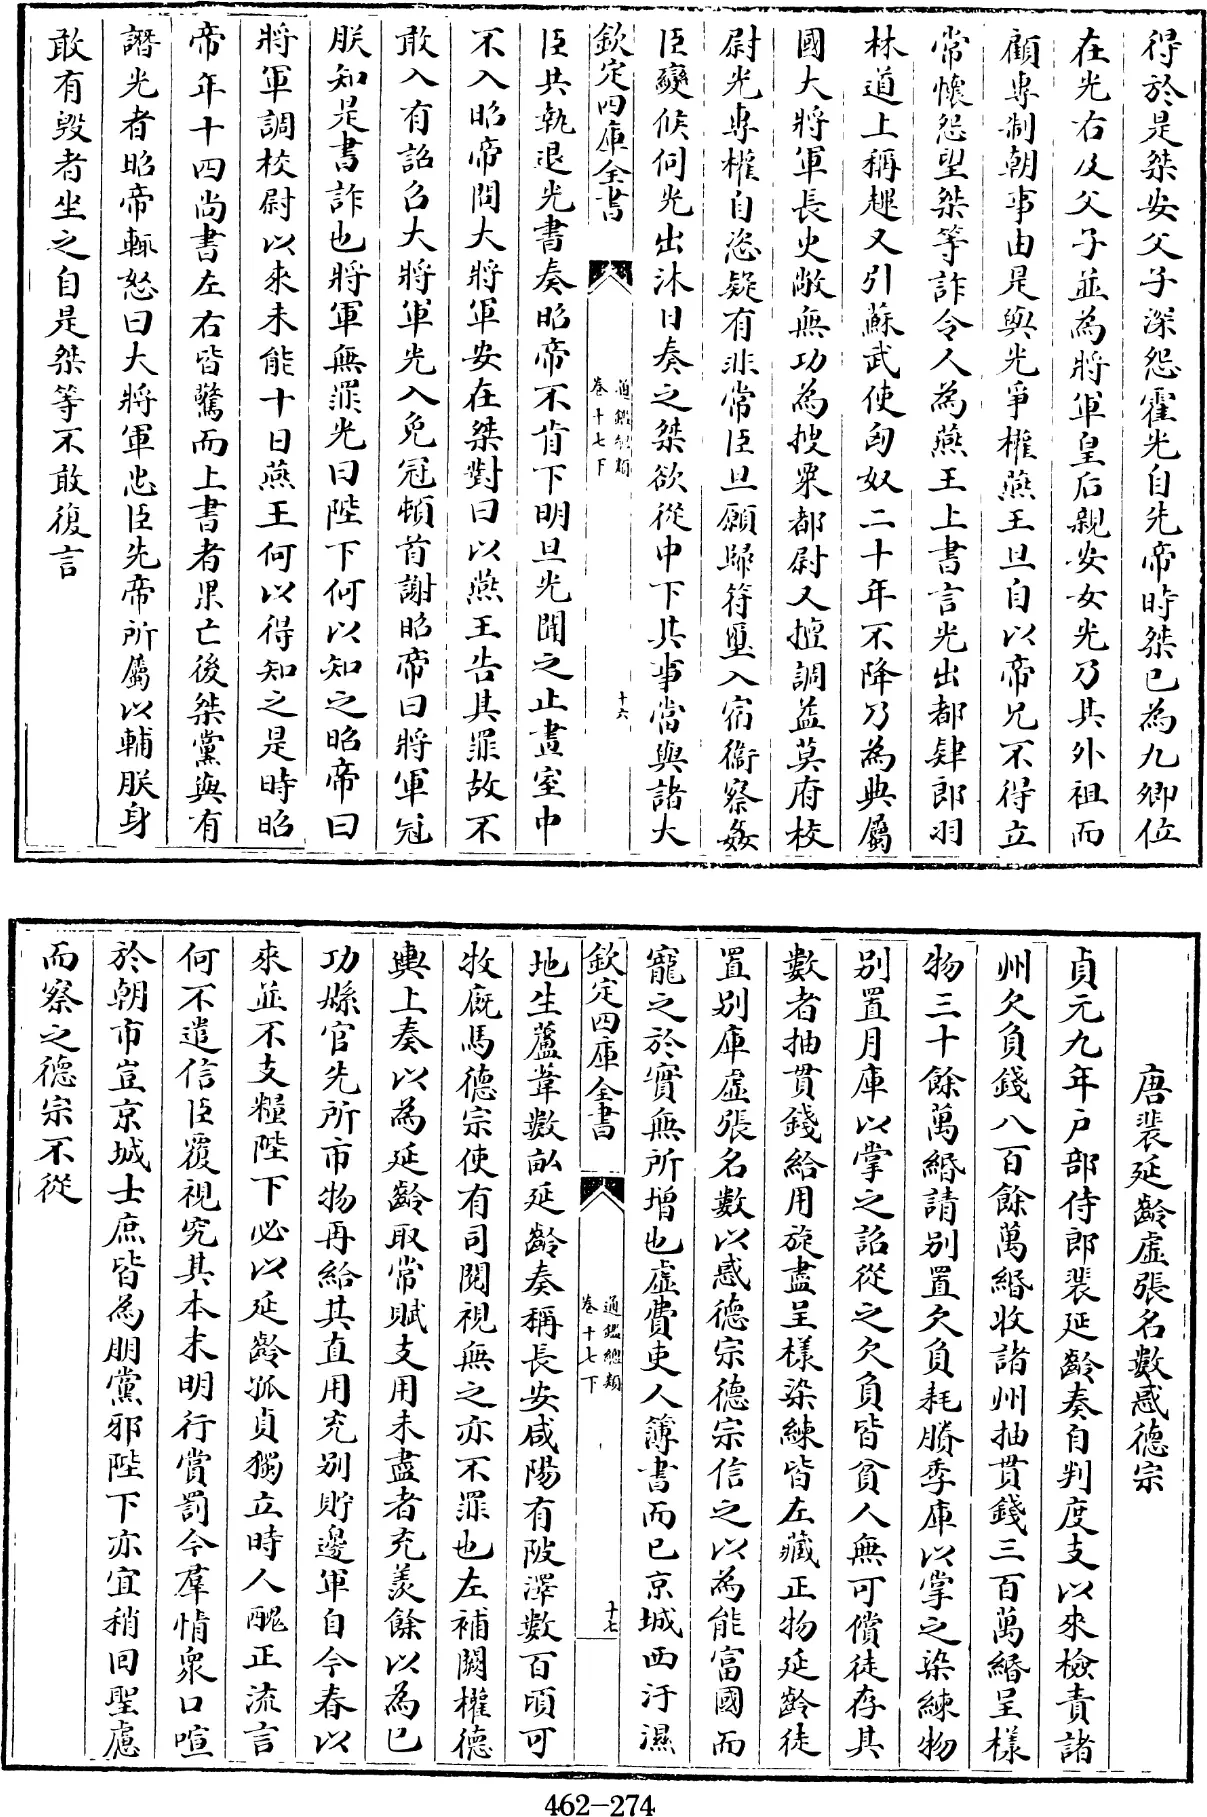 得於是桀安父子深怨霍光自先帝時桀已為九卿位
在光右及父子並為將軍皇后親安女光乃其外祖而
顧專制朝事由是與光爭權燕王旦自以帝兄不得立
常懷怨望桀等詐令人為燕王上書言光出都肄郎羽
林道上稱趯又引蘇武使匈奴二十年不降乃為典屬
國大將軍長史敞無功為搜粟都尉又擅調益莫府校
尉光專權自恣疑有非常臣旦願歸符璽入宿衞察姦
臣變候伺光出沐日奏之桀欲從中下其事當與諸大
欽定四庫全書
通鑑總類
卷十七下
十六
臣共執退光書奏昭帝不肯下明旦光聞之止畫室中
不入昭帝問大將軍安在桀對曰以燕王告其罪故不
敢入有詔召大將軍光入免冠頓首謝昭帝曰將軍冠
朕知是書詐也將軍無罪光曰陛下何以知之昭帝曰
將軍調校尉以來未能十日燕王何以得知之是時昭
帝年十四尚書左右皆驚而上書者果亡後桀黨與有
譖光者昭帝輒怒曰大將軍忠臣先帝所屬以輔朕身
敢有毀者坐之自是桀等不敢復言
唐裴延齡虛張名數惑德宗
貞元九年户部侍郎裴延齡奏自判度支以來檢責諸
州欠負錢八百餘萬緡收諸州抽貫錢三百萬緡呈樣
物三十餘萬緡請别置欠負耗賸季庫以掌之染練物
别置月庫以掌之詔從之欠負皆貧人無可償徒存其
數者抽貫錢給用旋盡呈樣染練皆左藏正物延齡徒
置别庫虛張名數以惑德宗德宗信之以為能富國而
寵之於實無所增也虛費吏人簿書而已京城西汙濕
欽定四庫全書
通鑑總類
卷十七下
十七
地生蘆葦數畝延齡奏稱長安咸陽有陂澤數百頃可
牧廐馬德宗使有司閱視無之亦不罪也左補闕權德
輿上奏以為延齡取常賦支用未盡者充羨餘以為已
功縣官先所市物再給其直用充别貯邊軍自今春以
來並不支糧陛下必以延齡孤貞獨立時人醜正流言
何不遣信臣覆視究其本末明行賞罰今羣情衆口喧
於朝市豈京城士庶皆為朋黨邪陛下亦宜稍回聖慮
而察之德宗不從
462-274